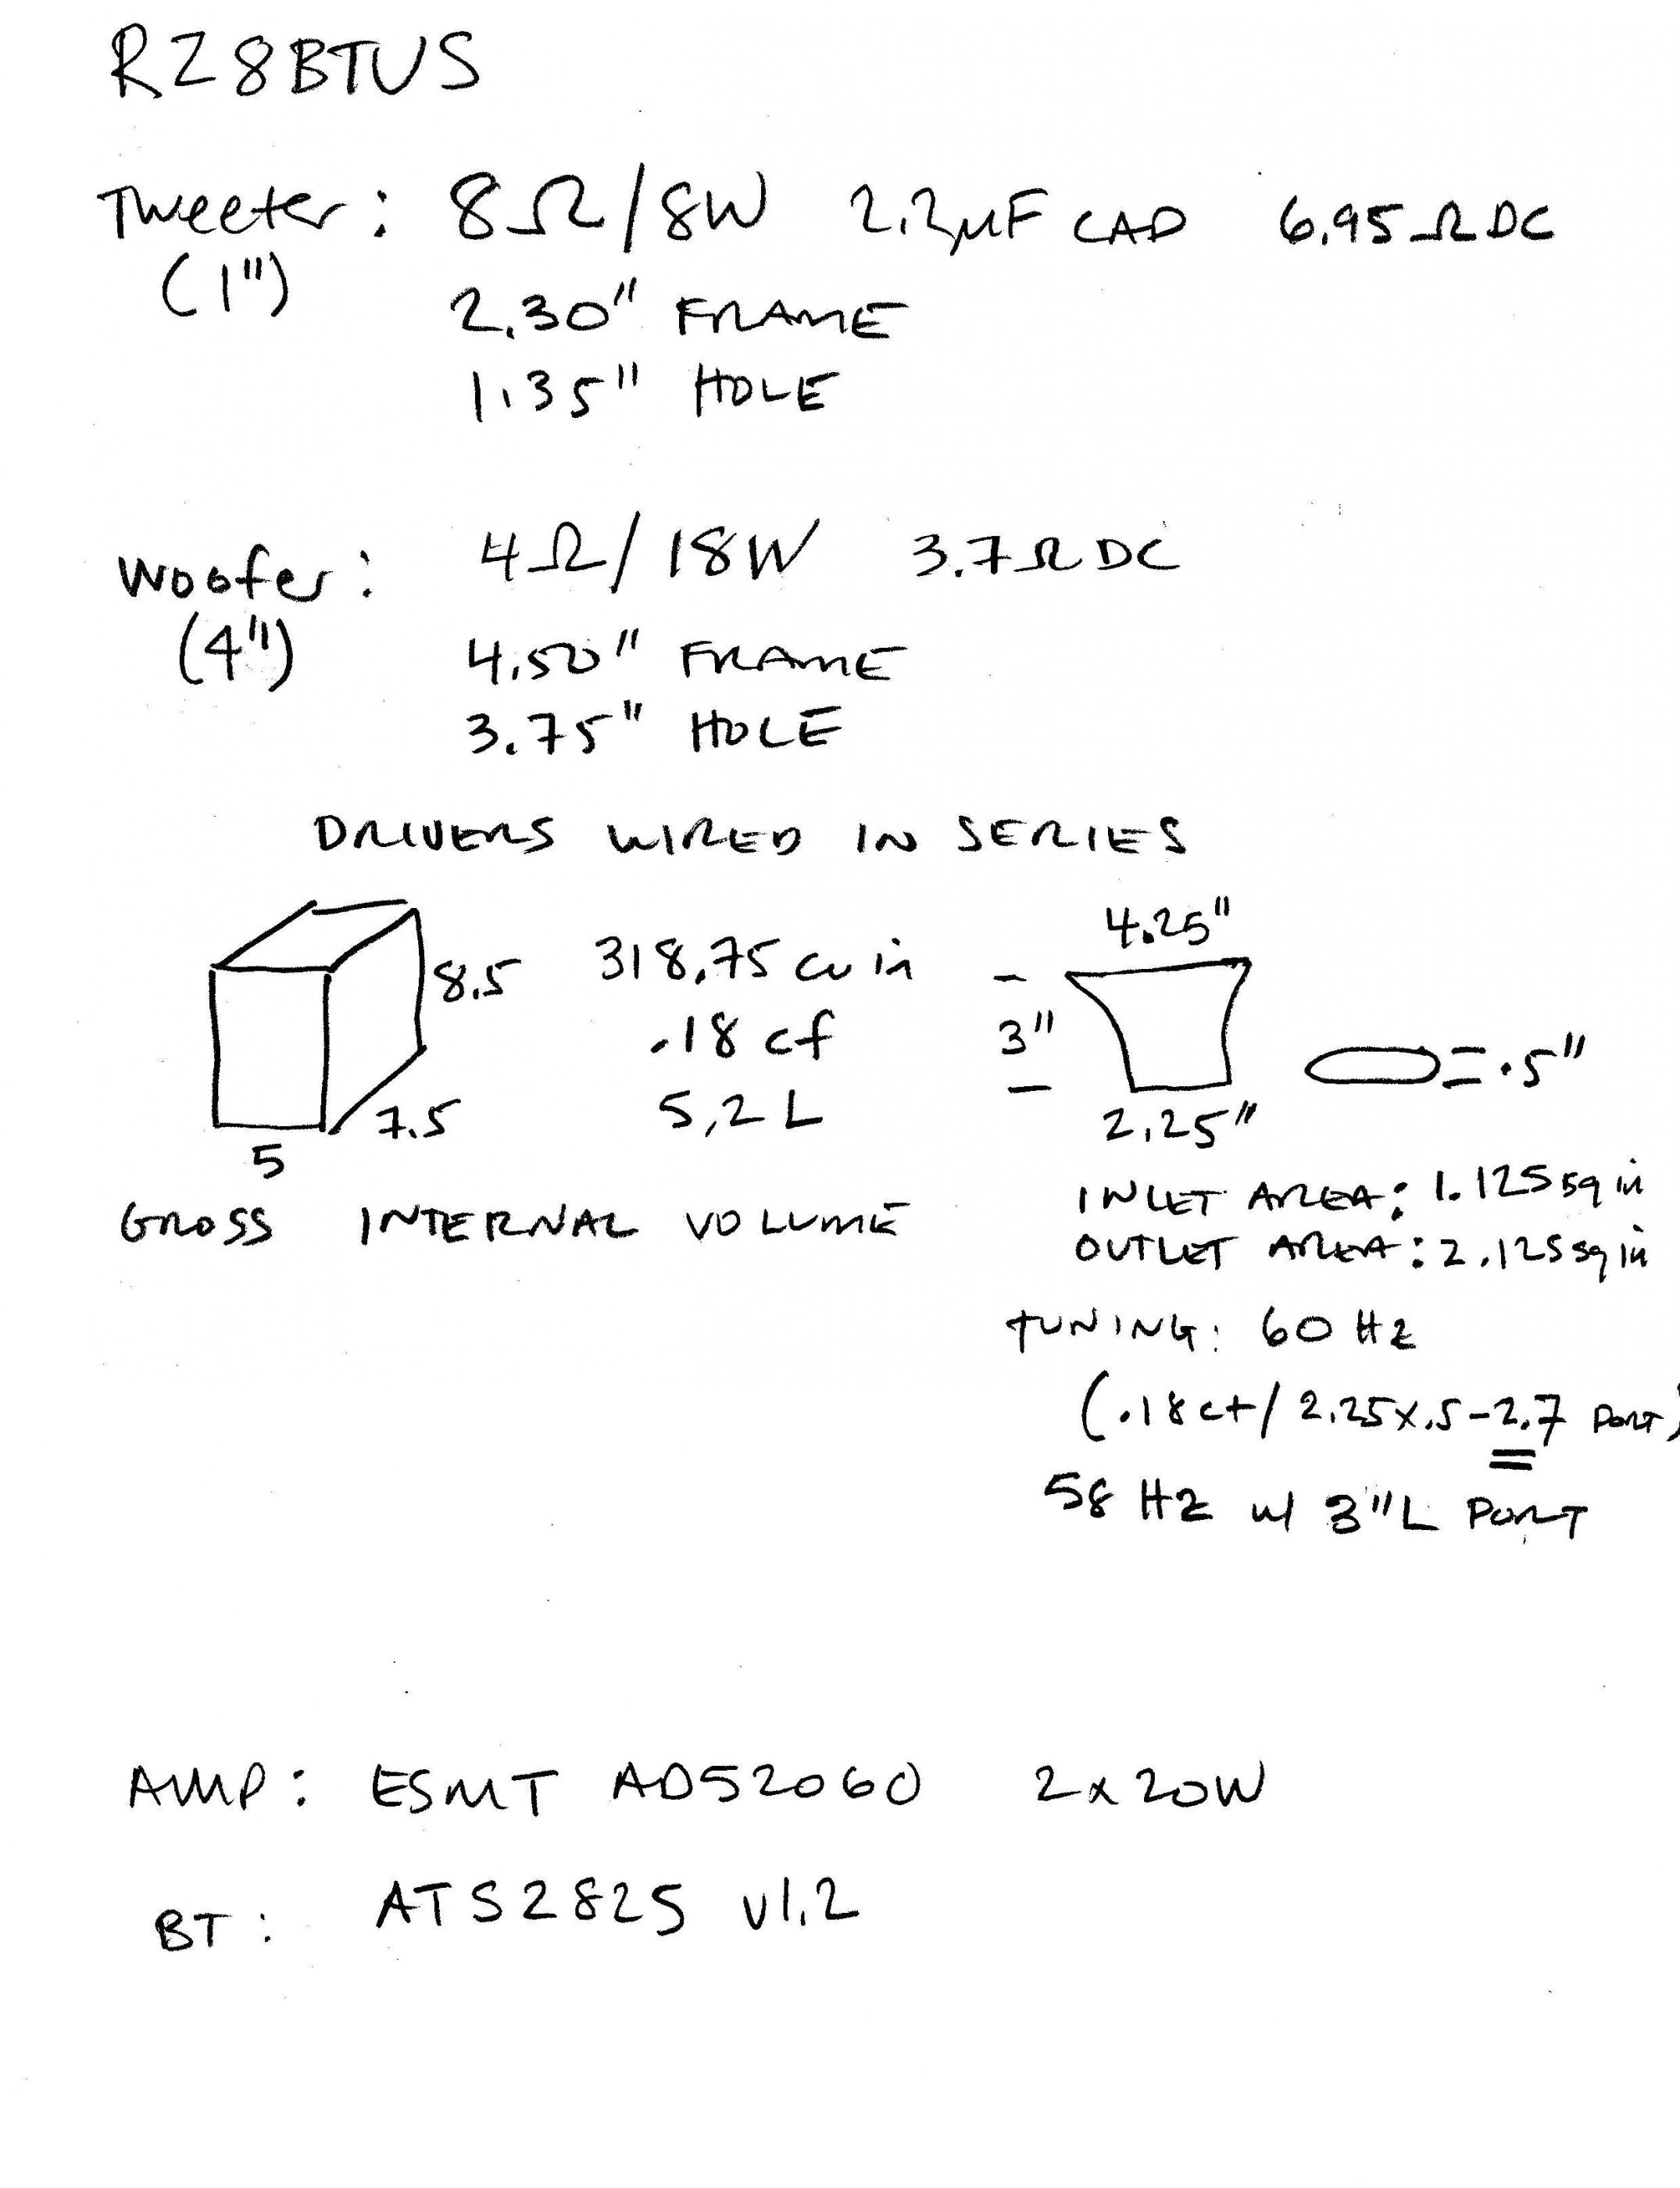 RZ8BTUS
Tweeter: 8Ω/8W 2.2µF CAP 6.95 Ω DC
(1")
2.30" FRAME
1.35" HOLE
Woofer: 4Ω/18W 3.7Ω DC
(4")
4.50" FRAME
3.75" HOLE
DRIVERS WIRED IN SERIES
8.5
7.5
5
318.75 cu in
.18 cf
5.2 L
GROSS INTERNAL VOLUME
4.25"
3"
2.25"
= .5"
INLET AREA: 1.125 sq in
OUTLET AREA: 2.125 sq in
TUNING: 60 Hz
(.18 cf/ 2.25x.5-2.7 PORT)
58 Hz w/ 3"L PORT
AMP: ESMT AD52060 2x20W
BT: ATS2825 v1.2